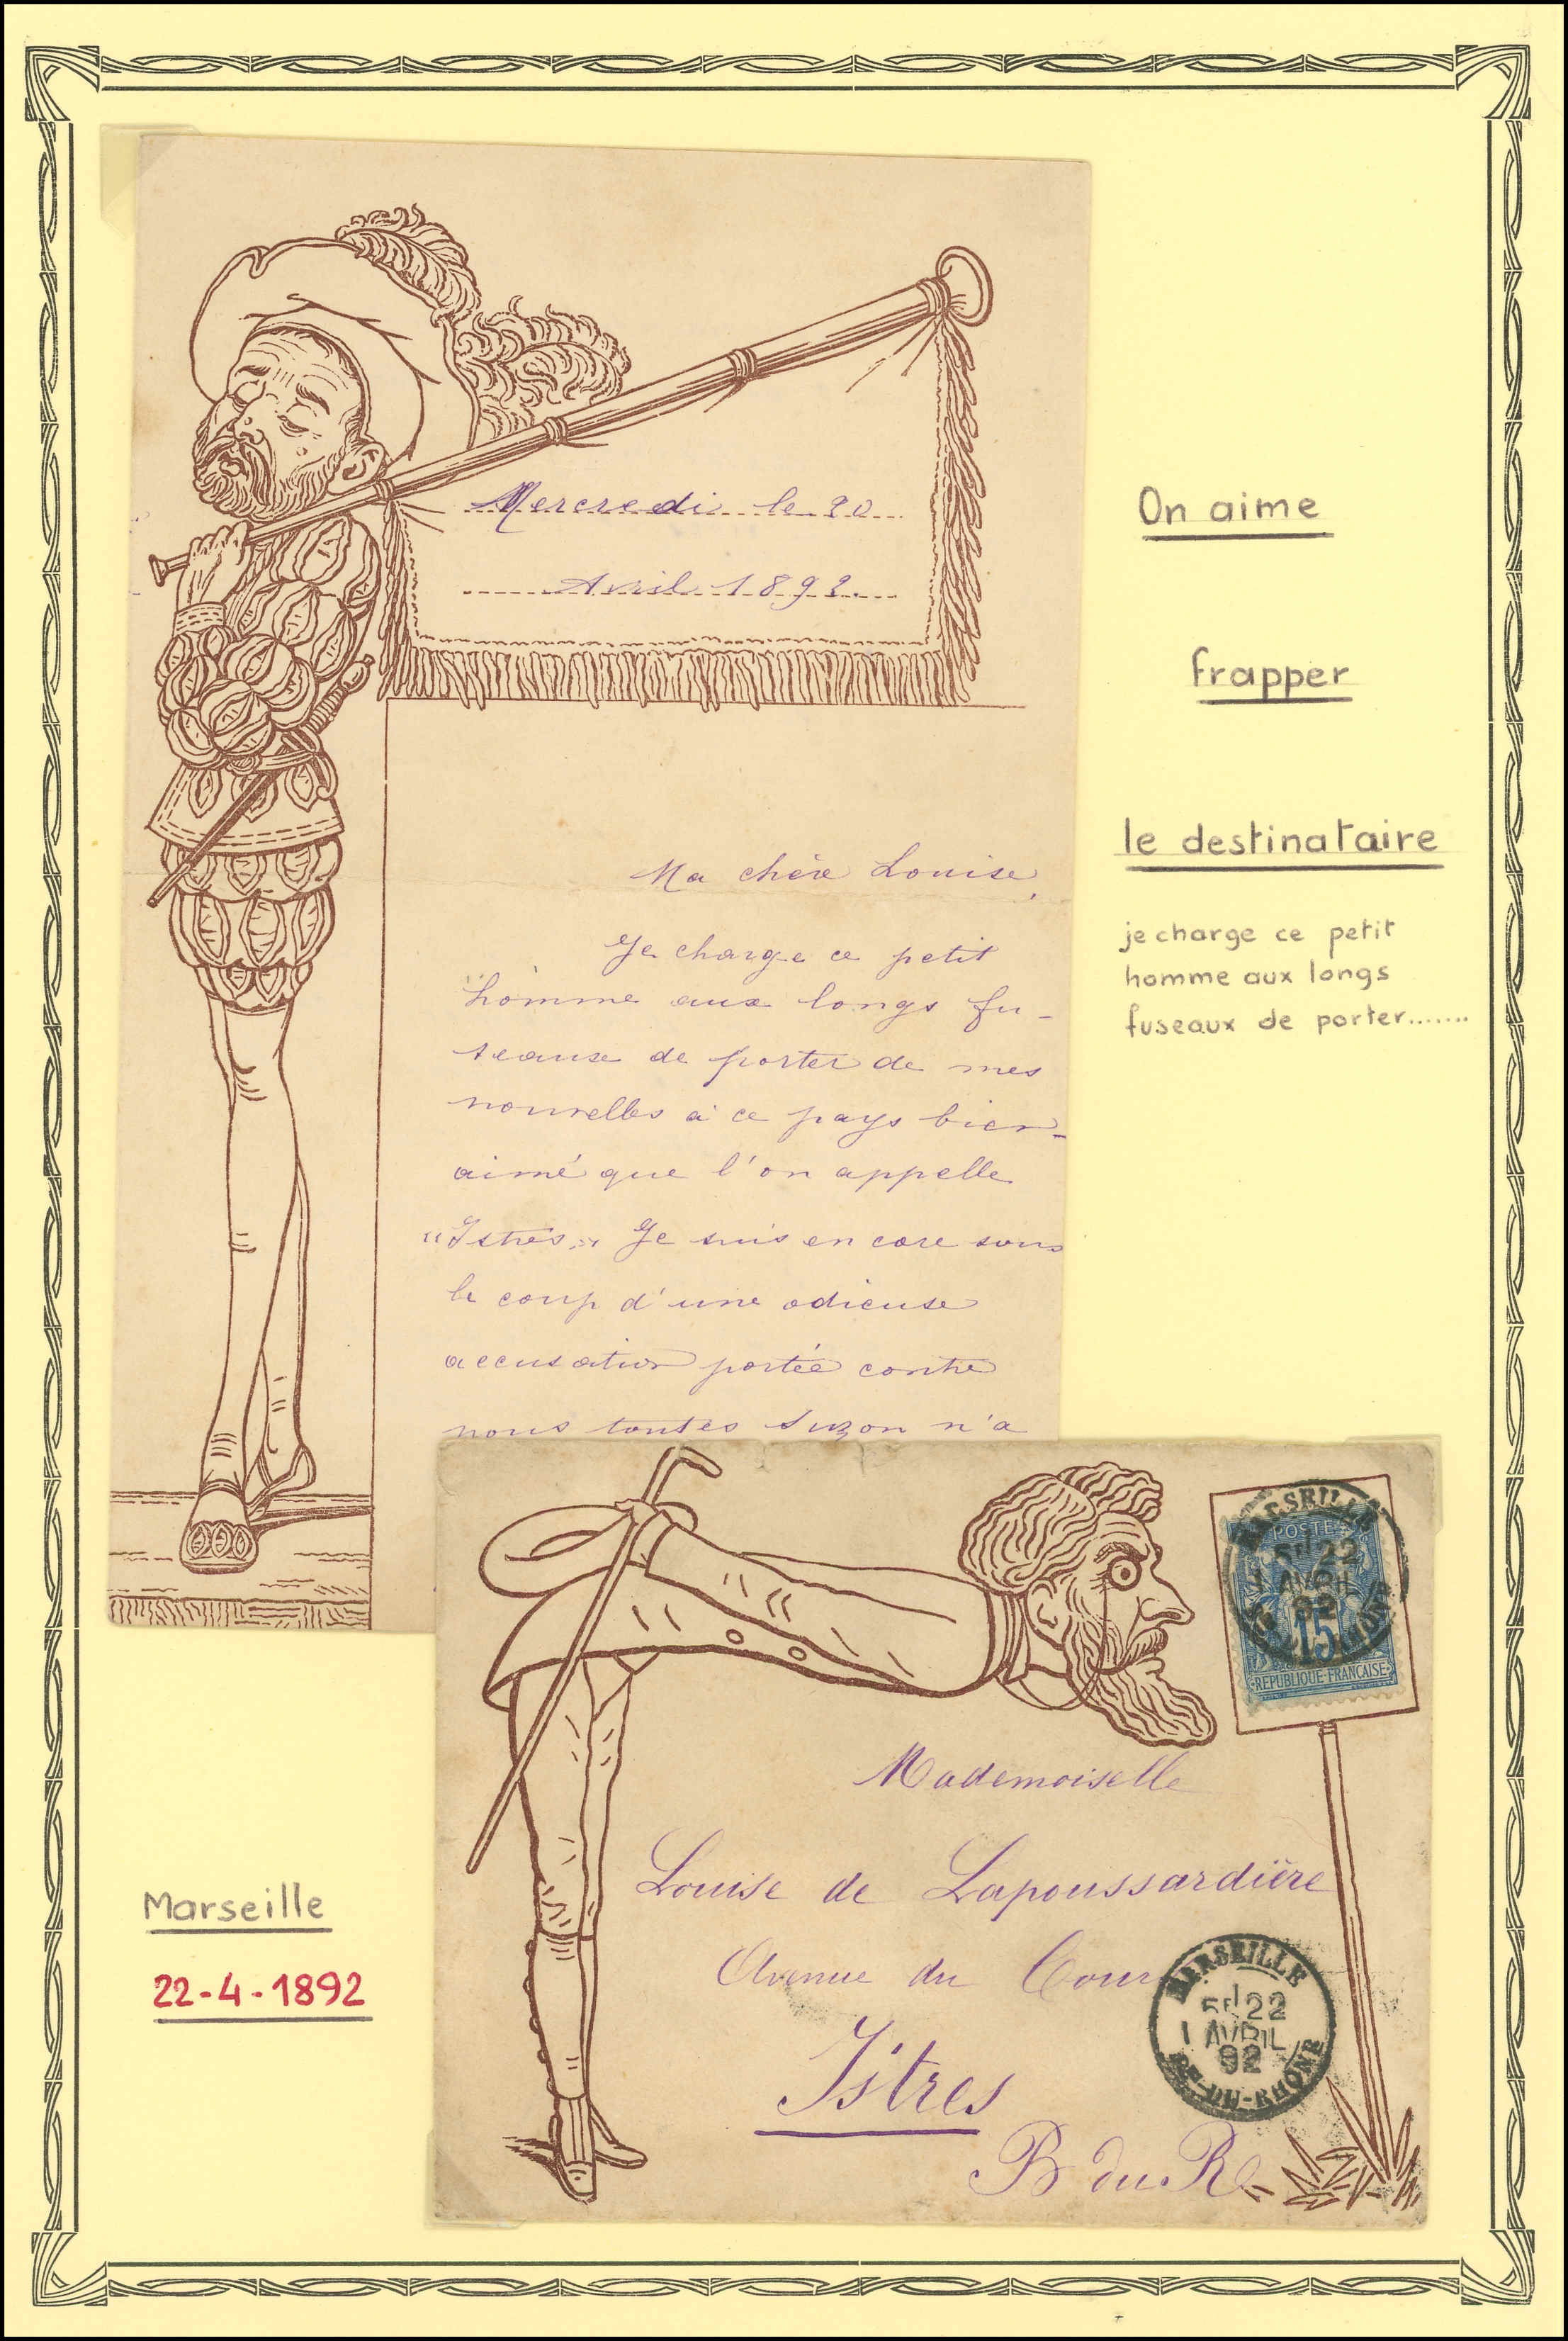 Mercredi le 20
Avril 1892.
On aime
frapper
le destinataire
je charge ce petit
homme aux longs
fuseaux de porter.......
Ma chère Louise,
Je charge ce petit
homme aux longs fu-
seaux de porter de mes
nouvelles à ce pays bien-
aimé que l'on appelle
"Istres." Je suis encore sous
le coup d'une odieuse
accusation portée contre
nous toutes Suzon n'a
MARSEILLE
5E 22
AVRIL
92
RHONE
POSTES
15
REPUBLIQUE FRANCAISE
Mademoiselle
Louise de Lapoussardière
Avenue du Cours
Istres
B du R
MARSEILLE
5E 22
1 AVRIL
92
BES-DU-RHONE
Marseille
22-4-1892